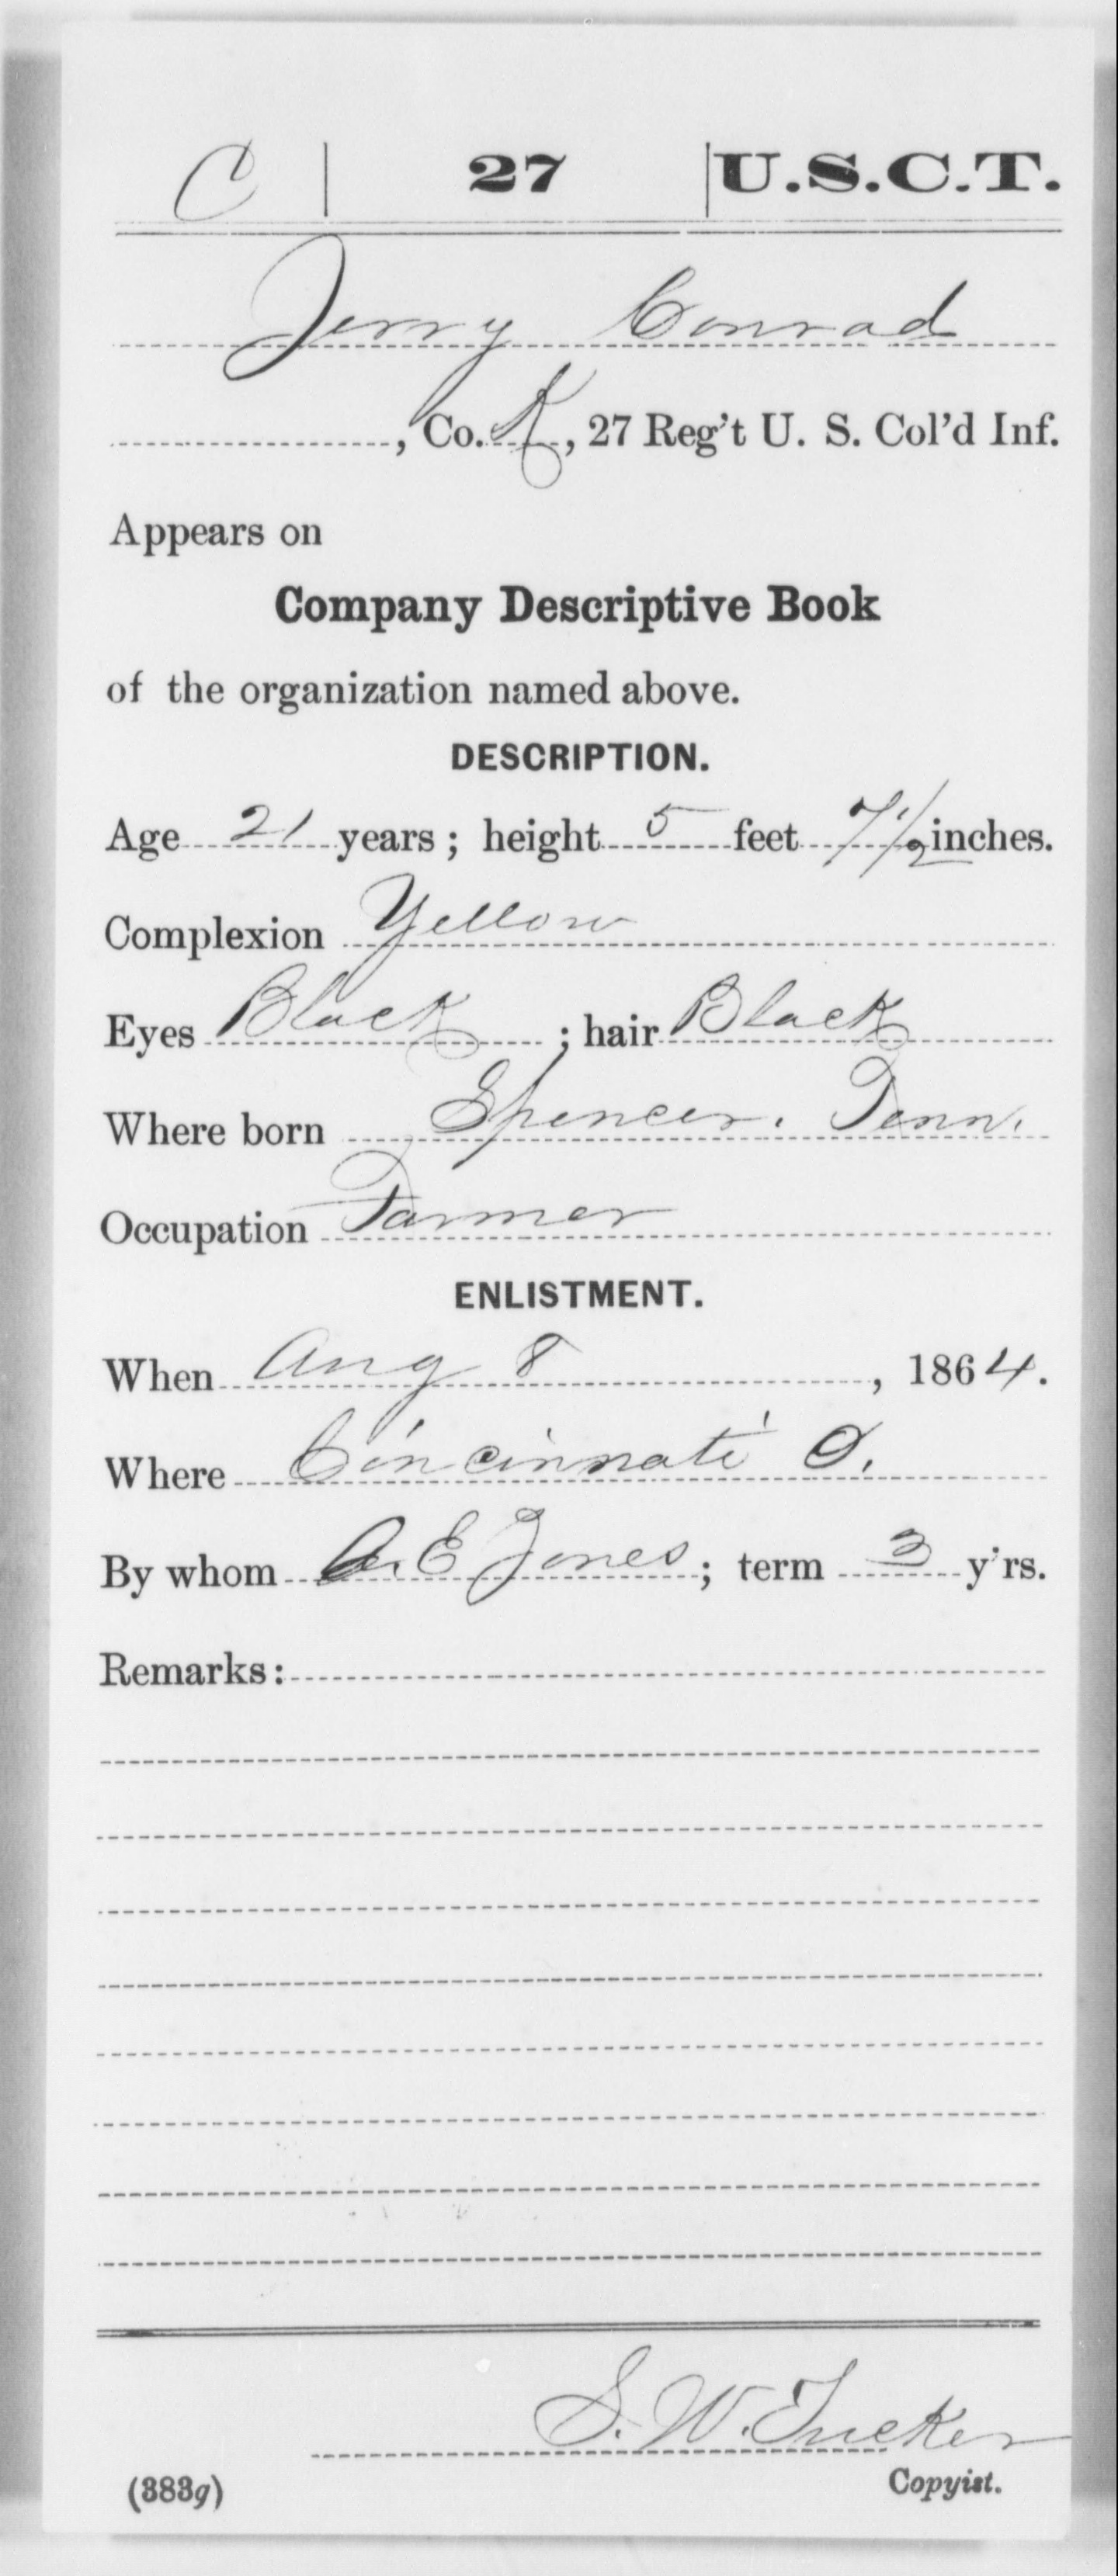 C | 27 | U.S.C.T.
Jerry Conrad
, Co. K, 27 Reg't U. S. Col'd Inf.
Appears on
Company Descriptive Book
of the organization named above.
DESCRIPTION.
Age 21 years; height 5 feet 7 1/2 inches.
Complexion Yellow
Eyes Black; hair Black
Where born Spencer. Tenn.
Occupation Farmer
ENLISTMENT.
When Aug 8, 1864.
Where Cincinnati O.
By whom A. E Jones; term 3 y'rs.
Remarks:
S. W. Tucker
(383g) Copyist.